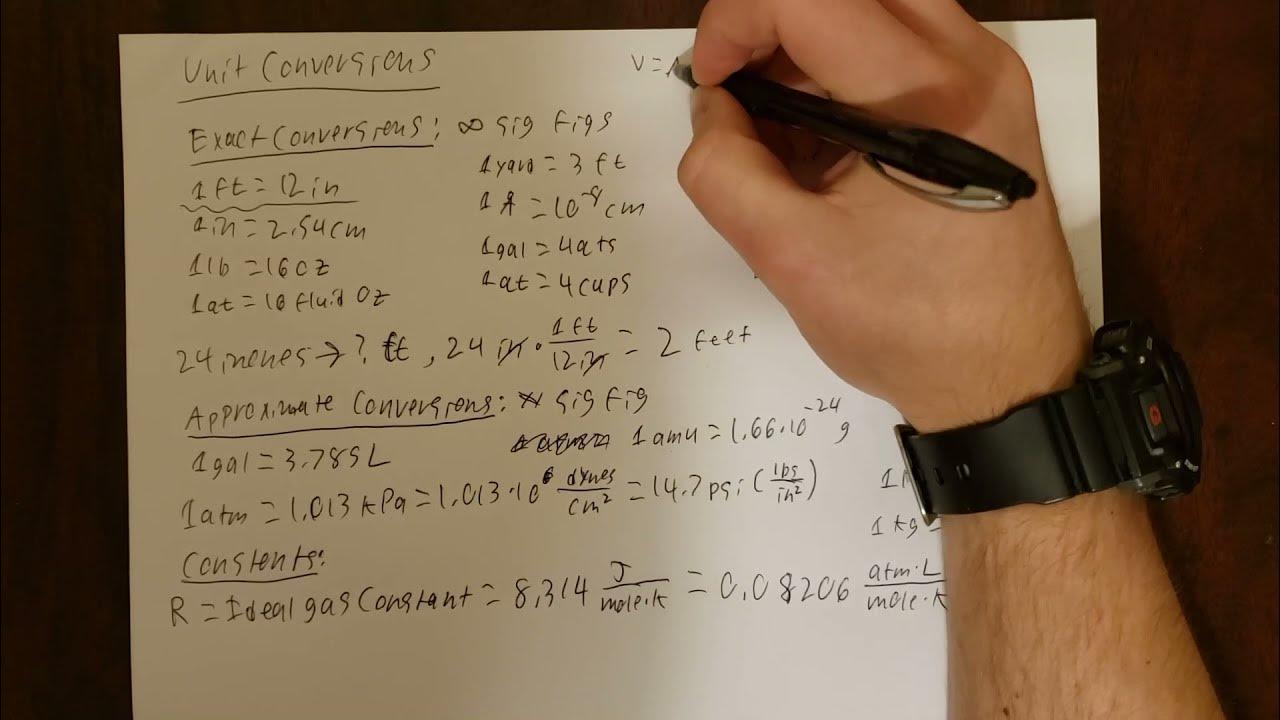 Unit Conversions
V =
Exact Conversions: ∞ sig figs
1 ft = 12 in
1 yard = 3 ft
1 in = 2.54 cm
1 Å = 10⁻⁸ cm
1 lb = 16 oz
1 gal = 4 qts
1 qt = 16 fluid Oz
1 qt = 4 cups
24 inches → ? ft, 24 in · 1 ft / 12 in = 2 feet
Approximate Conversions: * sig fig
1 gal = 3.785 L
1 amu = 1.66·10⁻²⁴ g
1 atm = 1.013 kPa = 1.013·10⁶ dynes/cm² = 14.7 psi (lbs/in²)
1 kg =
Constents:
R = Ideal gas Constant = 8.314 J/mole·K = 0.08206 atm·L/mole·K